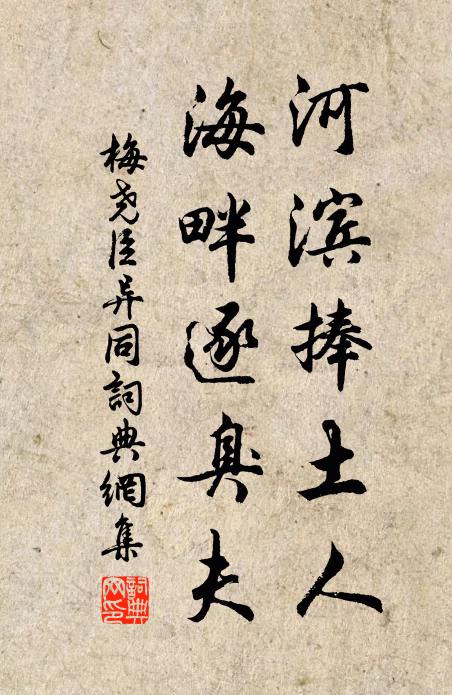 河滨捧土人
海畔逐臭夫
梅尧臣异同詞典網集
詞典
网印